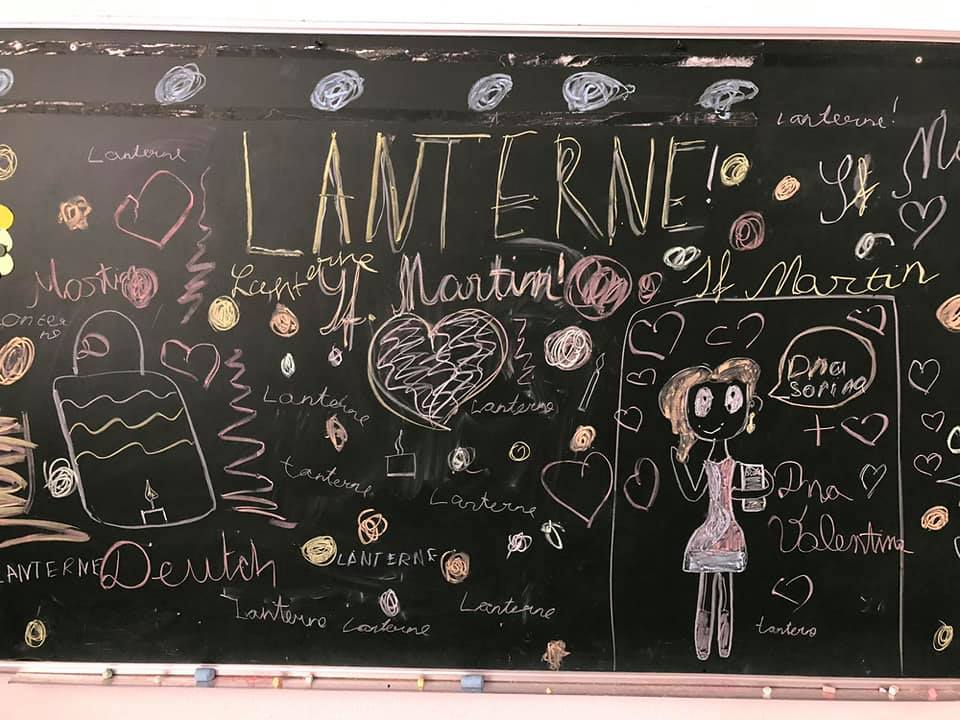 Lanterne!
Lanterne
LANTERNE!
Sf
Martin
Lanterne
Sf. Martin!
Sf Martin
Dna
Sorina
Lanterne
Lanterne
Lanterne
Lanterne
+ Dna
Valentina
LANTERNE
Deutch
LANTERNE
Lanterne
Lanterne
Lanterne
Lantern